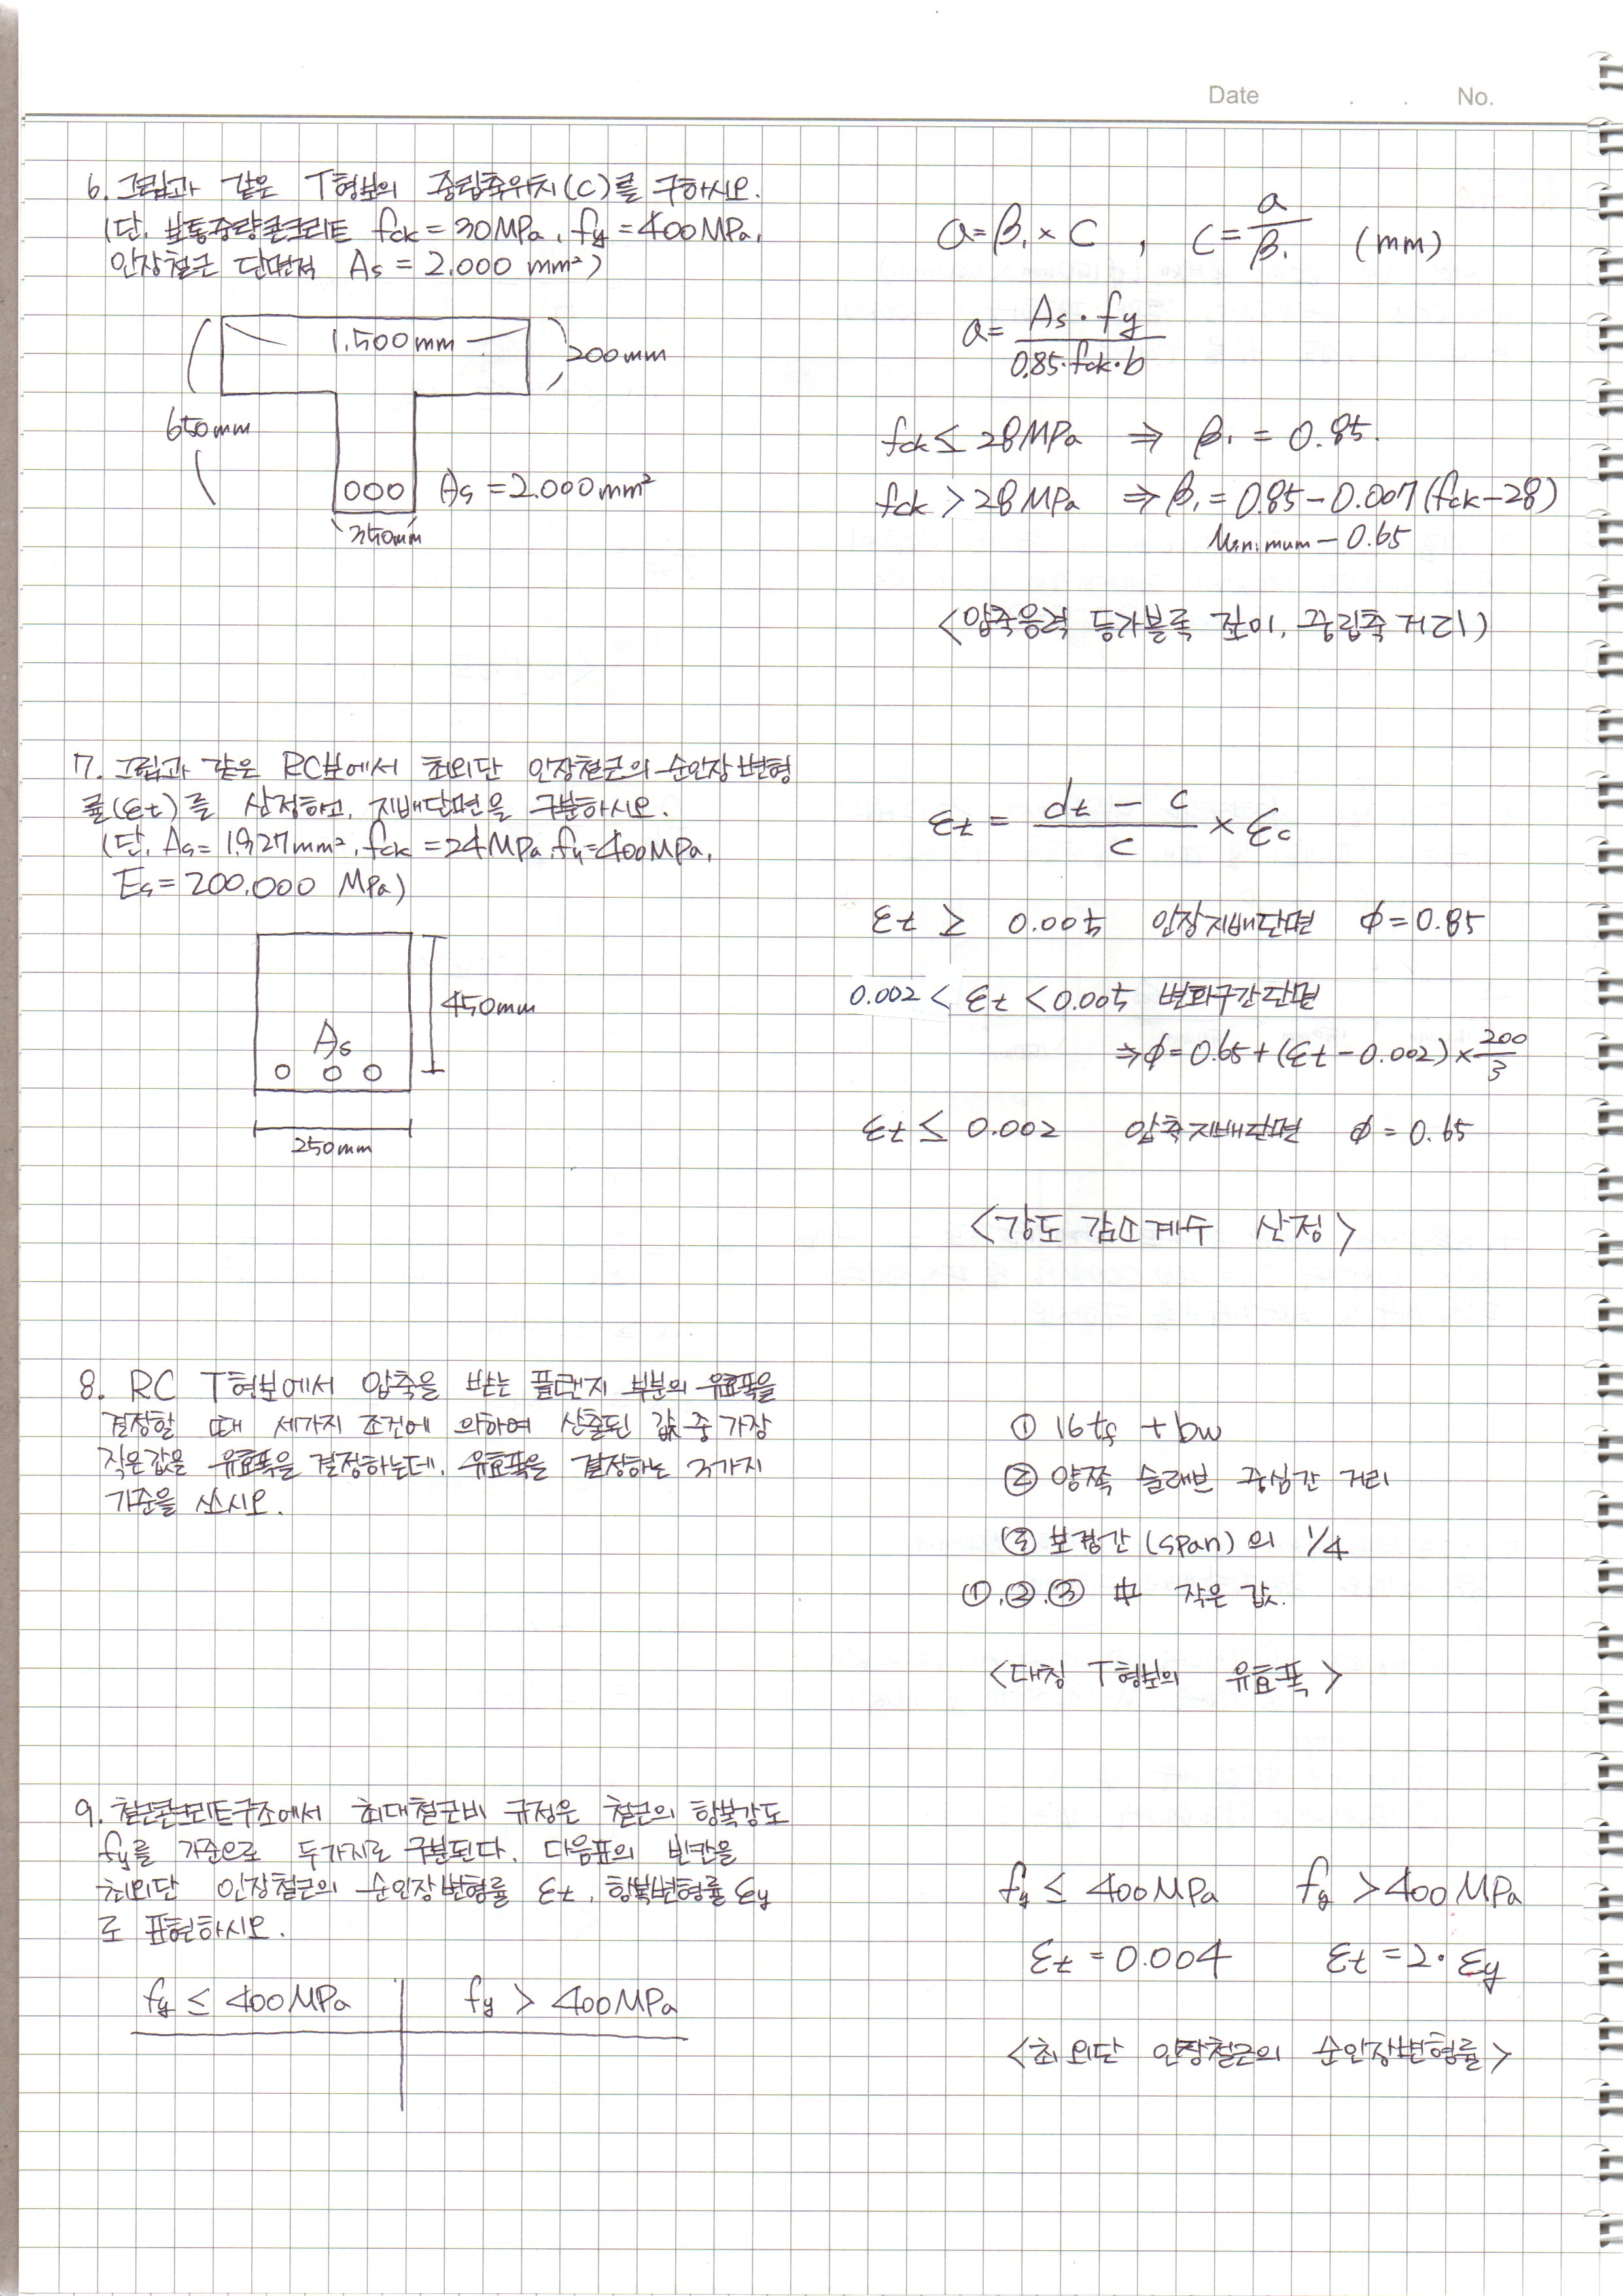 Date . . No.
6. 그림과 같은 T형보의 중립축위치(C)를 구하시오.
(단, 보통중량콘크리트 fck = 30MPa, fy = 400MPa,
인장철근 단면적 As = 2.000 mm²)
1.500mm
200mm
650mm
As = 2.000mm²
350mm
a = β₁ × C , C = a/β₁ (mm)
a = As·fy / 0.85·fck·b
fck ≤ 28MPa ⇒ β₁ = 0.85.
fck > 28MPa ⇒ β₁ = 0.85 - 0.007(fck-28)
Minimum - 0.65
<압축응력 등가블록 깊이, 중립축 거리>
7. 그림과 같은 RC보에서 최외단 인장철근의 순인장변형
률(εt)를 산정하고, 지배단면을 구분하시오.
(단, As = 1.927mm², fck = 24MPa, fy = 400MPa,
Es = 200.000 MPa)
As
450mm
250mm
εt = (dt - c)/c × εc
εt ≥ 0.005 인장지배단면 φ = 0.85
0.002 < εt < 0.005 변화구간단면
⇒ φ = 0.65 + (εt - 0.002) × 200/3
εt ≤ 0.002 압축지배단면 φ = 0.65
<강도 감소계수 산정>
8. RC T형보에서 압축을 받는 플랜지 부분의 유효폭을
결정할 때 세가지 조건에 의하여 산출된 값 중 가장
작은값을 유효폭을 결정하는데, 유효폭을 결정하는 3가지
기준을 쓰시오.
① 16tf + bw
② 양쪽 슬래브 중심간 거리
③ 보경간(span)의 1/4
①.②.③ 中 작은 값.
<대칭 T형보의 유효폭>
9. 철근콘크리트구조에서 최대철근비 규정은 철근의 항복강도
fy를 기준으로 두가지로 구분된다. 다음표의 빈칸을
최외단 인장철근의 순인장변형률 εt, 항복변형률 εy
로 표현하시오.
fy ≤ 400MPa fy > 400MPa
fy ≤ 400MPa fy > 400MPa
εt = 0.004 εt = 2·εy
<최외단 인장철근의 순인장변형률>